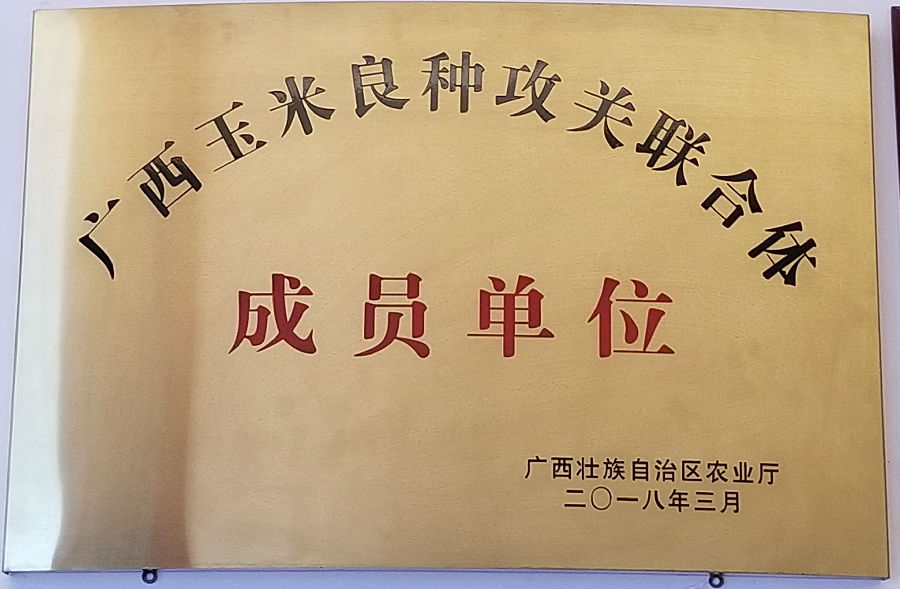 广西玉米良种攻关联合体
成员单位
广西壮族自治区农业厅
二〇一八年三月